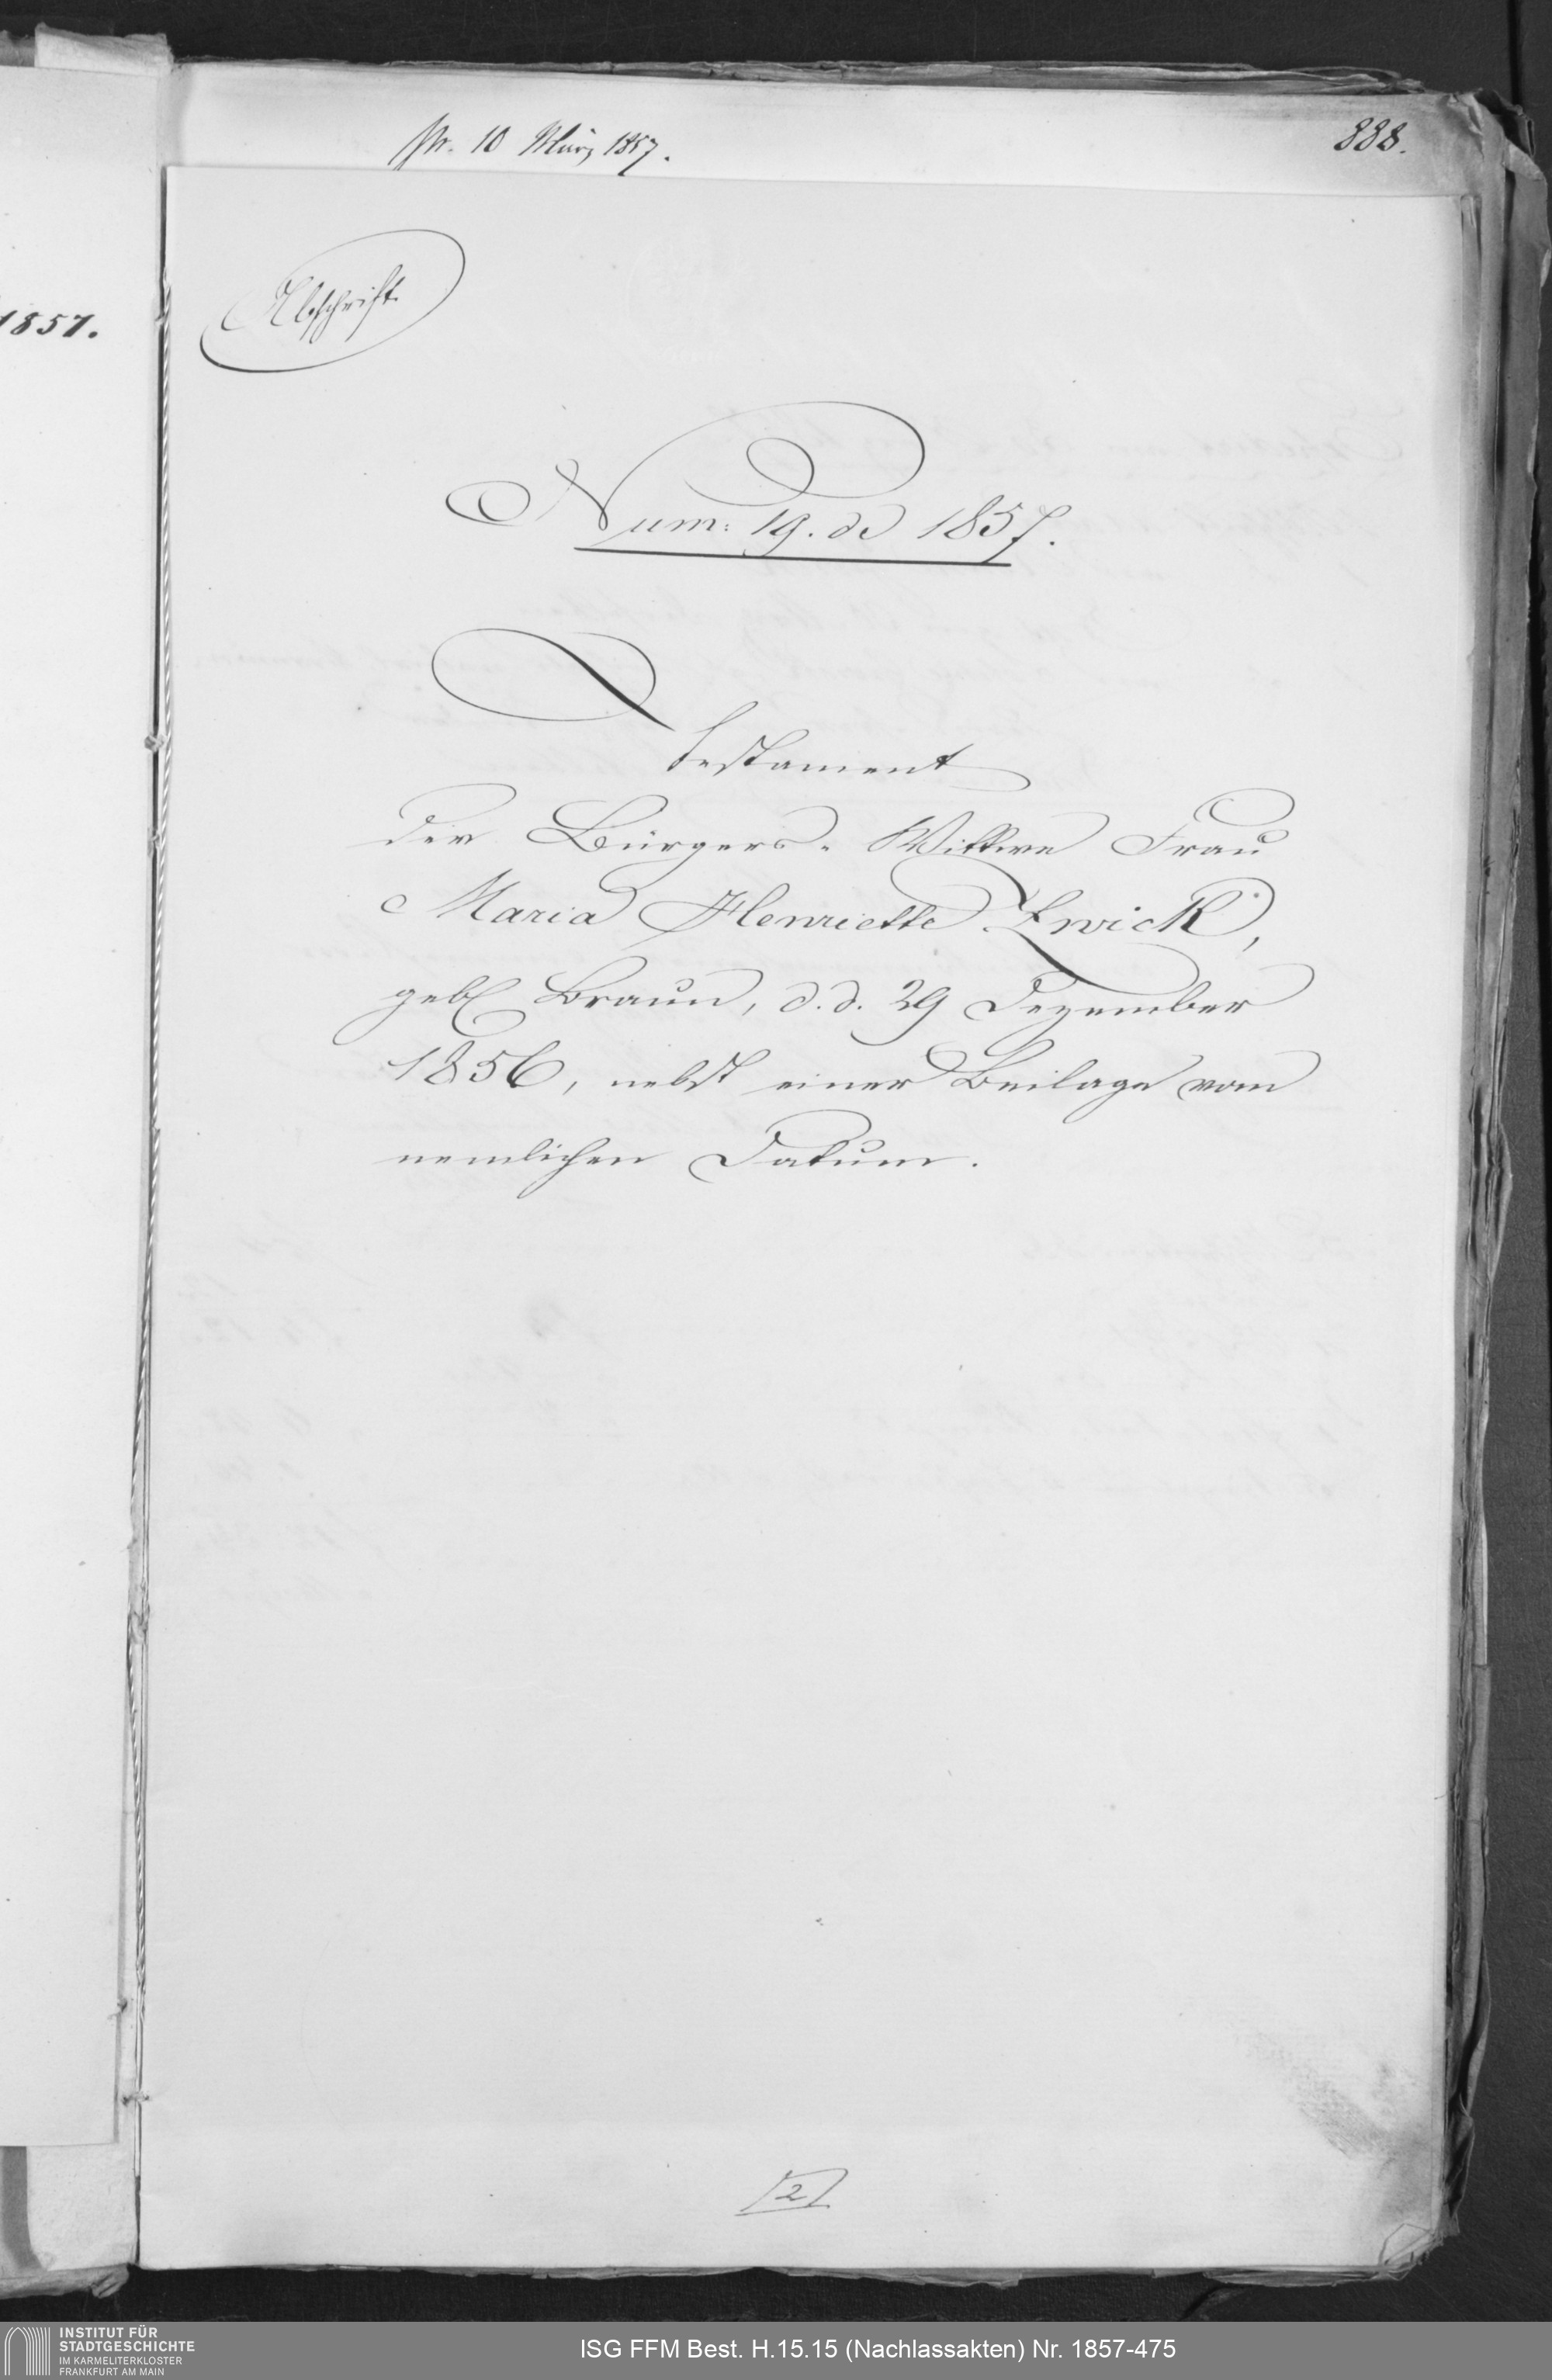 pr. 10 März 1857.
888.
1857.
Abschrift
Num: 19. de 1857.
Testament
der Bürgers-Wittwe Frau
Maria Henriette Zwick,
geb. Braun, d. d. 29 Dezember
1856, nebst einer Beilage vom
nemlichen Datum.
2
INSTITUT FÜR
STADTGESCHICHTE
IM KARMELITERKLOSTER
FRANKFURT AM MAIN
ISG FFM Best. H.15.15 (Nachlassakten) Nr. 1857-475